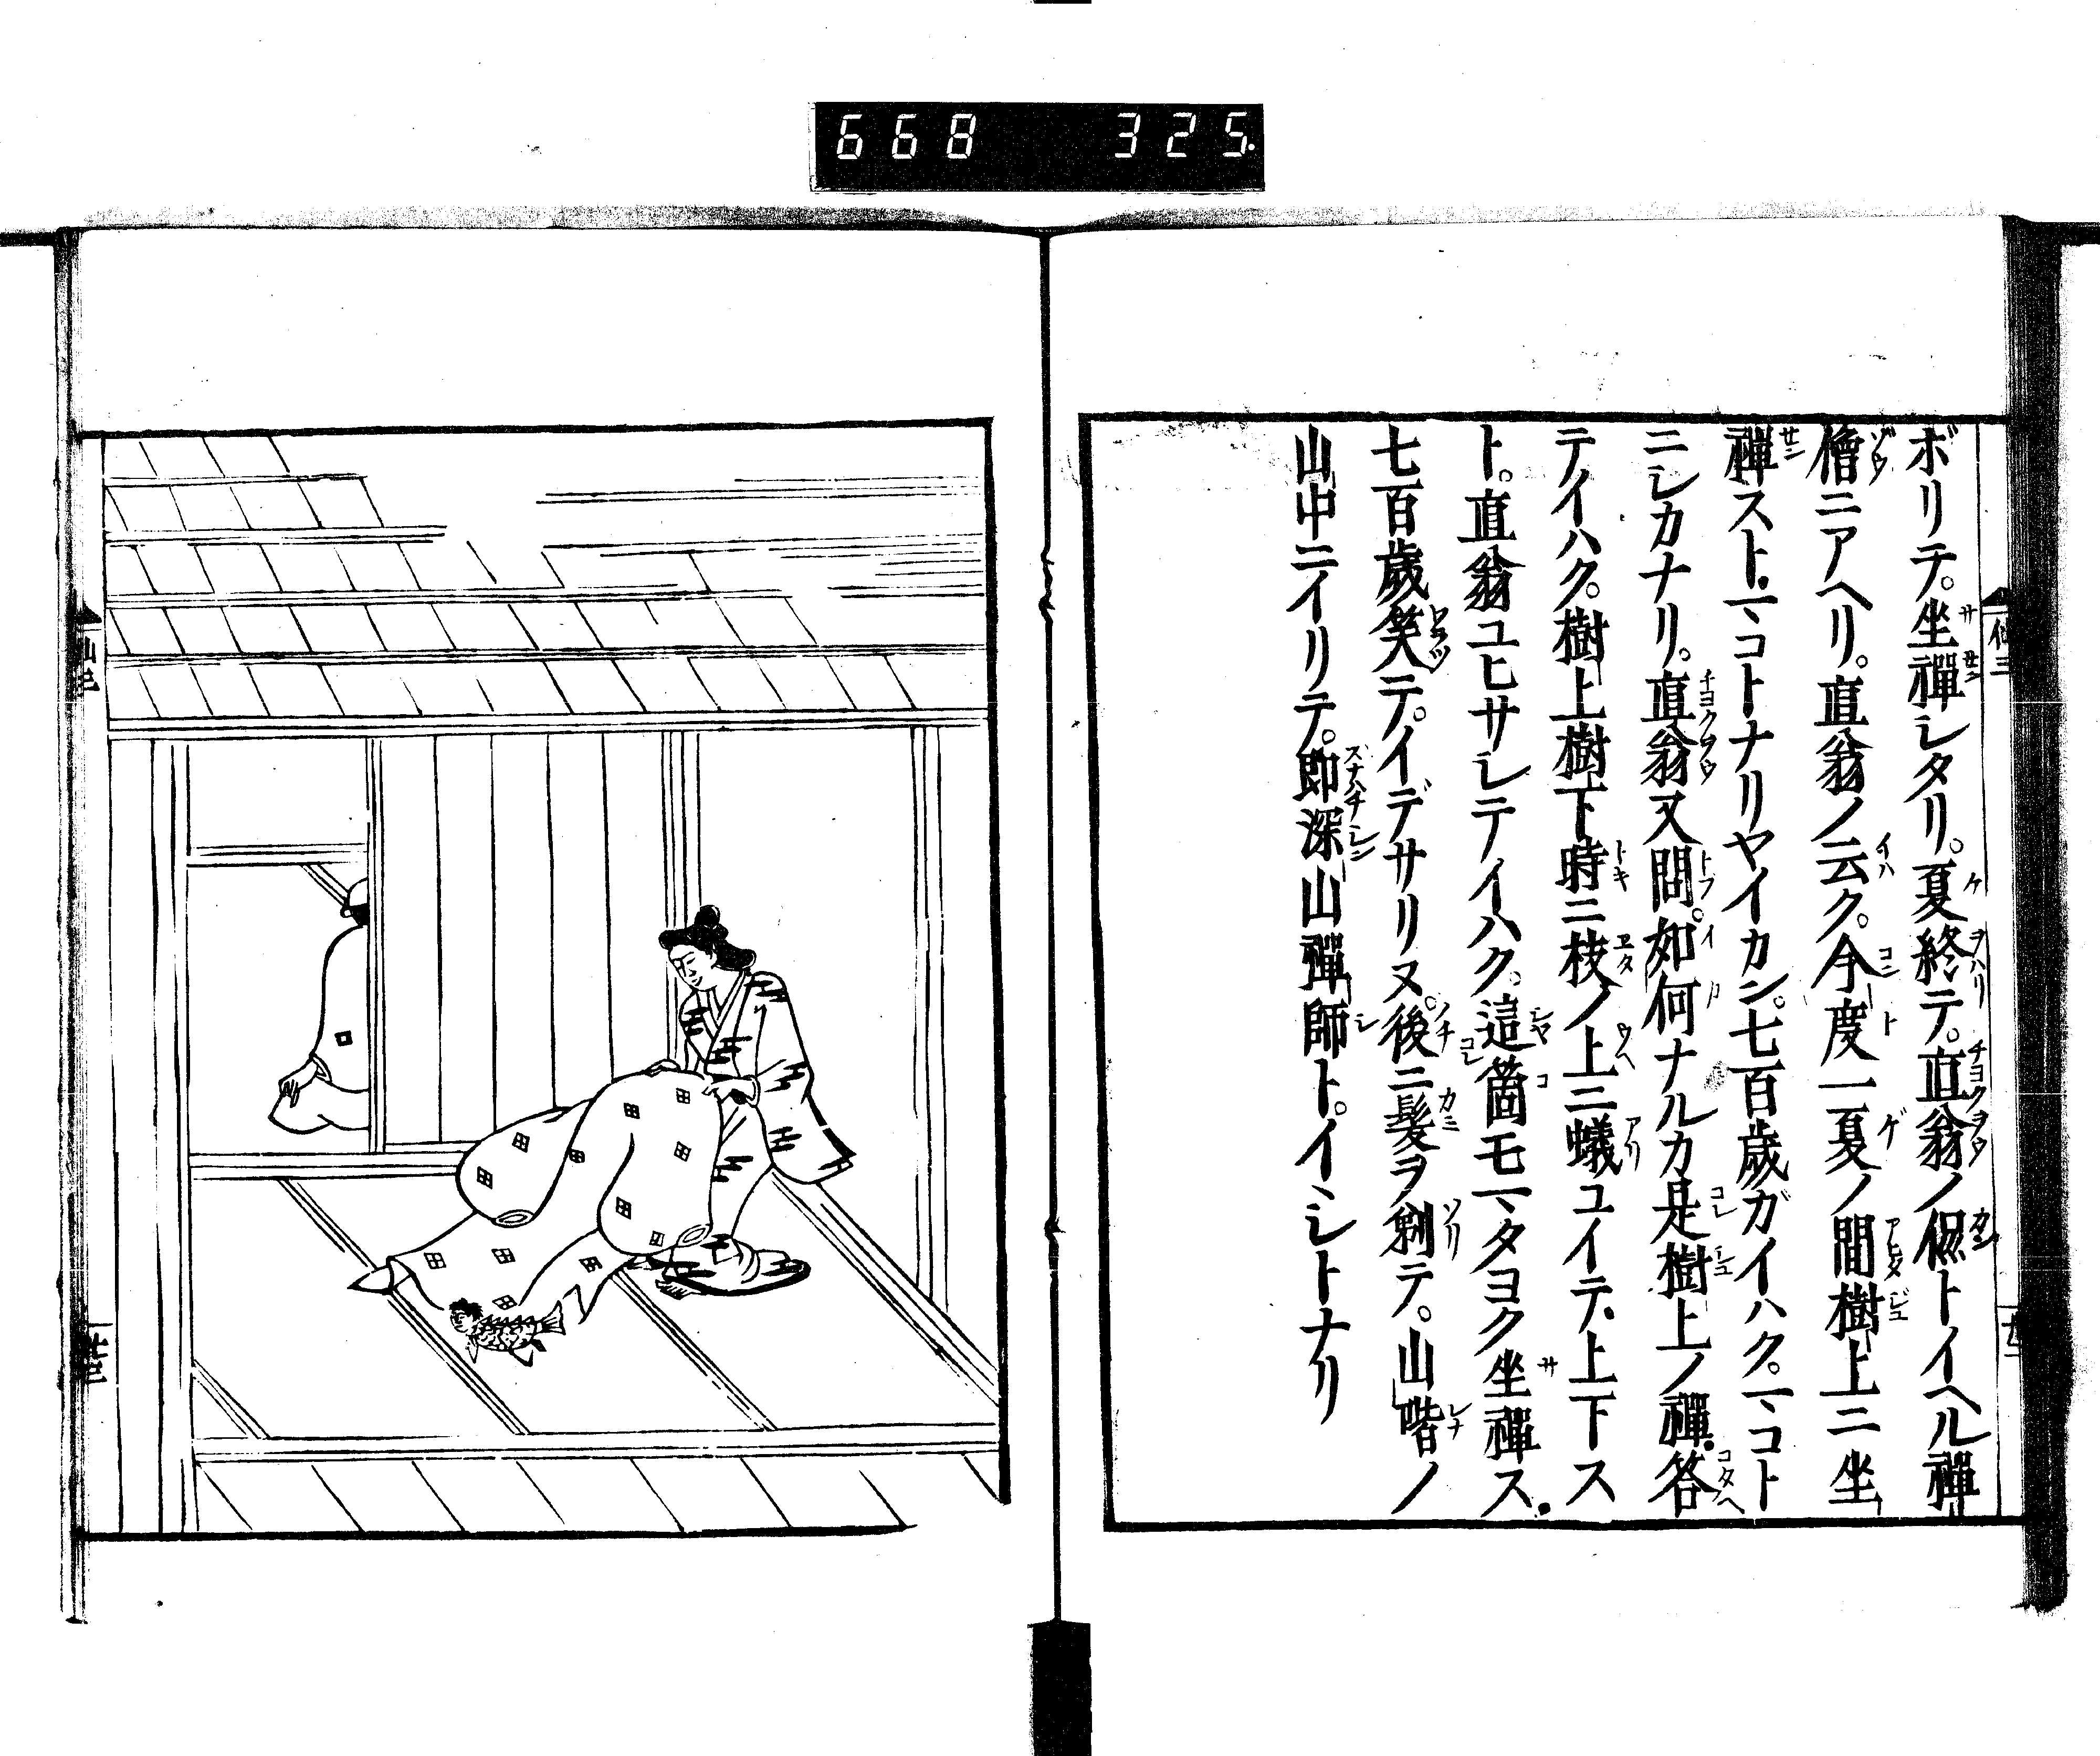 668 325
ボリテ。坐禪シタリ。夏終テ。直翁ノ侃トイヘル禪
僧ニアヘリ。直翁ノ云ク。今度一夏ノ間樹上ニ坐
禪スト.マヽコトナリヤイカン。七百歳ガイハク。マヽコト
ニシカナリ。直翁又問。如何ナルカ是樹上ノ禪.答
テイハク。樹上樹下時ニ枝ノ上ニ蟻ユイテ.上下ス
ト。直翁ユヒサシテイハク。這箇モマヽタヨク坐禪ス.
七百歳笑テ。イデサリヌ。後ニ髪ヲ剃テ。山階ノ
山中ニイリテ。即深山禪師ト。イヽシトナリ
仙三